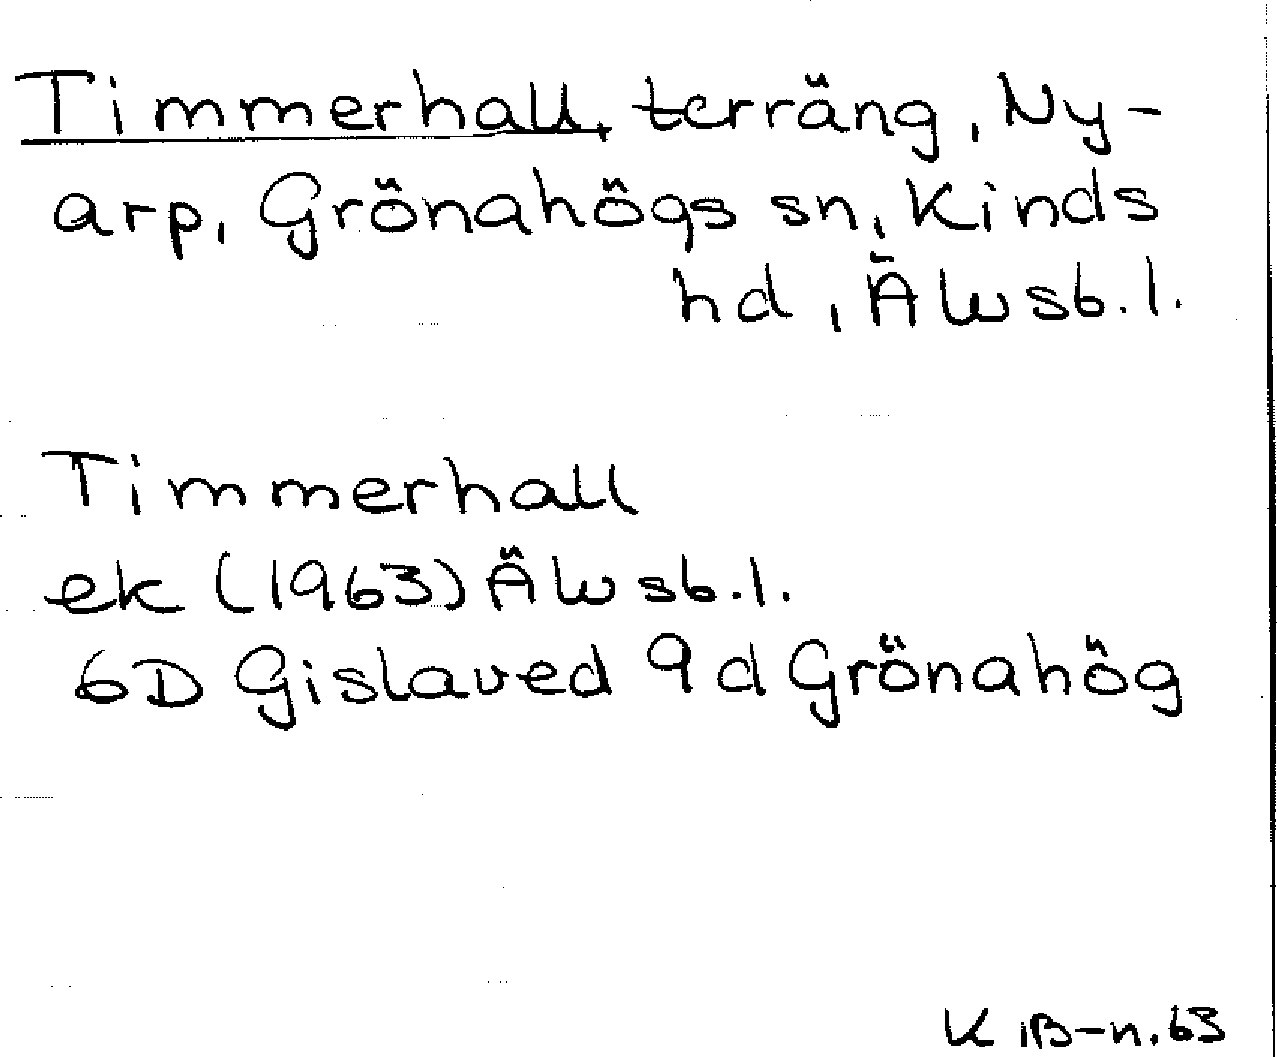 Timmerhall, terräng, Ny-
arp, Grönahögs sn, Kinds
hd, Älvsb.l.
Timmerhall
ek (1963) Älvsb.l.
6D Gislaved 9d Grönahög
K iB-n.63